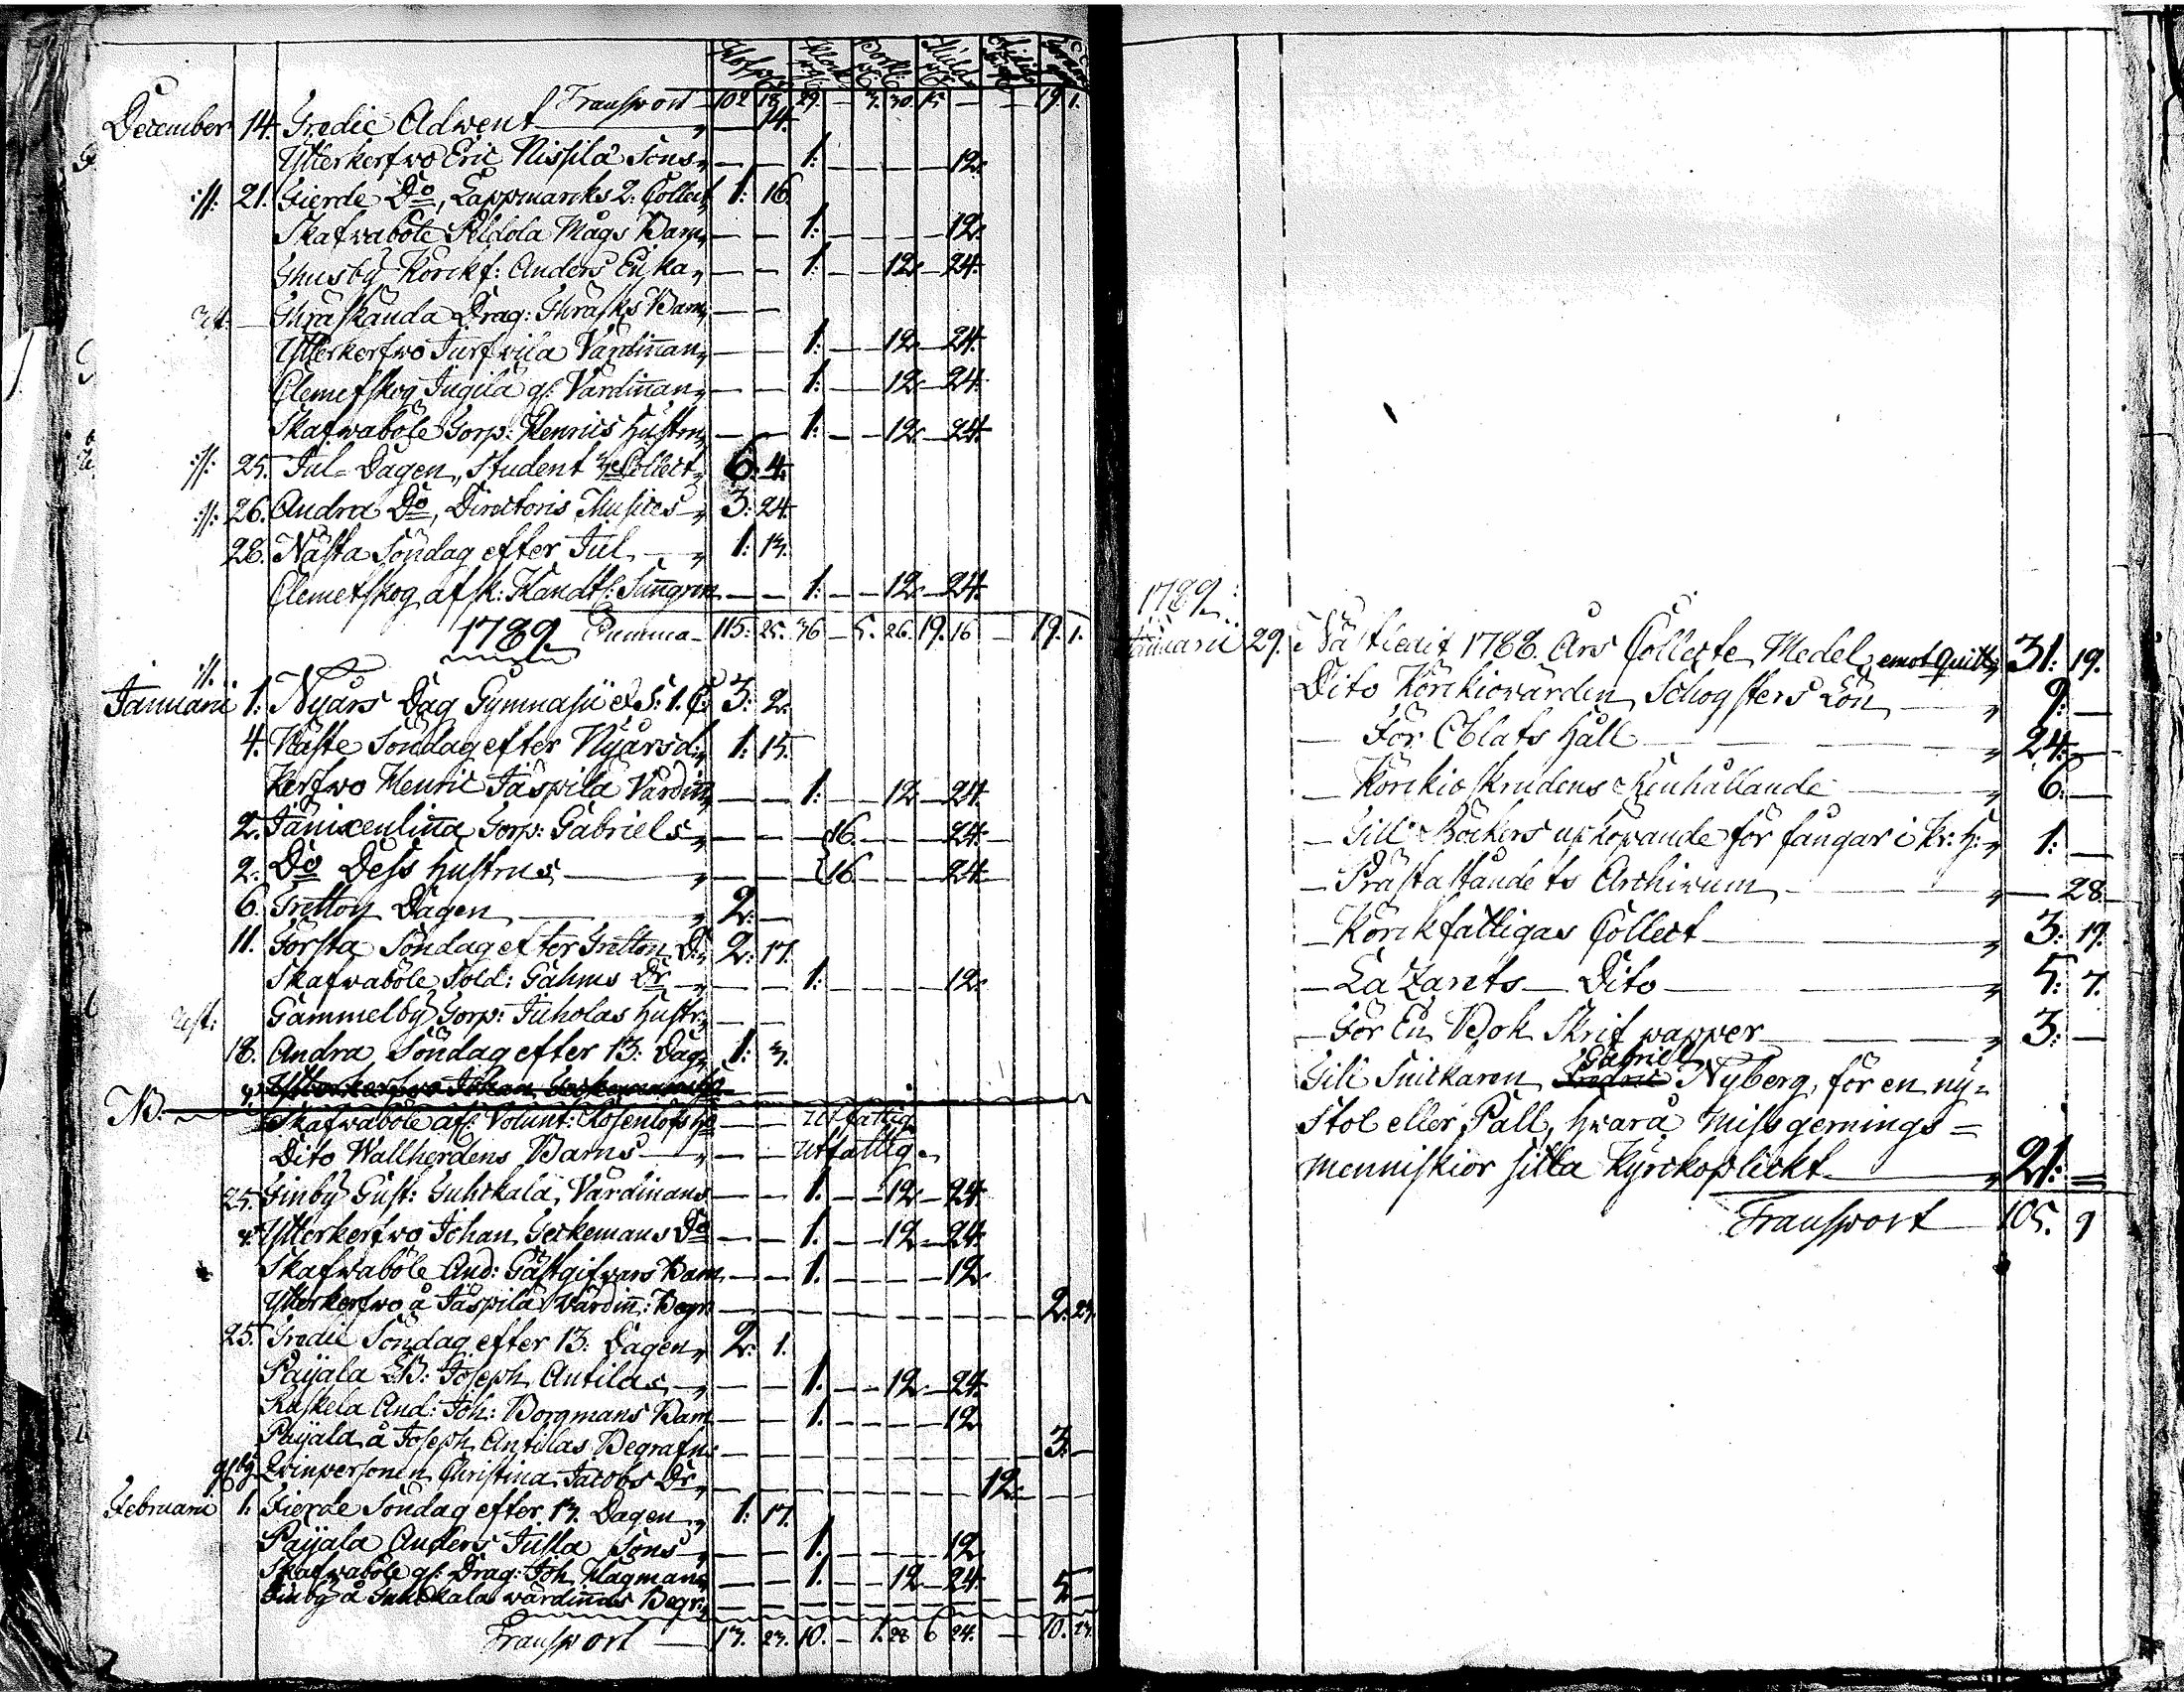 Transport 102 18 29 - 3. 30. 15 - - 19. 1.
December 14. Tredie Adwent " — 14.
Ytterkerfwo Eric Nissilä Sons " — — 1: — — — — 12.
:/: 21. Fierde Do, Lappmarcks 2: Collect, 1: 16.
Skafwaböle Mågs Barn " — — 1: — — — — 12.
Husby Körckf: Anders Enka " — — 1: — — 12. — 24.
Träskända Drag: Träsks Barn " — —
Ytterkerfwo Värdiñan " — — 1: — — 12. — 24.
Clemetskog Jugila gl: Värdiñan " — — 1: — — 12. — 24.
Skafwaböle Torp: Henrics Hustru " — — 1: — — 12. — 24.
:/: 25. Jul-Dagen, Student Collect " 6: 4.
:/: 26. Andra Do, Directoris Musices — " 3: 24.
28. Nästa Söndag efter Jul — " 1: 13.
Clemetskog afsk: — — 1: — — 12. — 24.
1789. Summa — 115: 25. 36 — 5. 26. 19. 16 — 19. 1.
:/:
Januarii 1: Nyårs Dag Gymnasii 1. C: 3: 2.
4. Näste Söndag efter Nyårsd: " 1: 15.
Kerfwo Henric Jäspilä Värdiñ " — — 1: — — 12. — 24.
2. Torp: Gabriels " — — — 16. — — — 24. —
2. Do Dess Hustrus — " — — — 16. — — — 24. —
6. Tretton Dagen — " 2: —
11. Första Söndag efter Tretton D: " 2: 17.
Skafwaböle Sold: Gahms Dr " — — 1: — — — — 12.
Rest: Gammelby Torp: Juholas Hustr: " — —
18. Andra Söndag efter 13: Dag " 1: 3.
4. Ytterkerfwo Johan Geckemans Do
NB. Skafwaböle afl: Volunt: Rosenlöfs — — utfattig
Dito Wallherdens Barns — " — — utfattig "
25. Finby Gust: Värdiñans — — 1. — — 12. — 24.
Ytterkerfwo Johan Geckemans Do — — 1. — — 12. — 24.
Skafwaböle And: Gästgifvars Barn — — 1. — — — — 12.
Ytterkerfwo å Jäspilä Värdiñ: Begr: — 2. 24.
25. Tredie Söndag efter 13: Dagen " 2: 1.
Payala Joseph Antilas " — — 1. — — 12. — 24.
Ruskela And: Joh: Borgmans Barn — — 1. — — — — 12.
Payala å Joseph Antilas Begrafn: — 3: —
Qvinpersonen Christina Jacobs Dr " — 12. — —
Februarii 1: Fierde Söndag efter 13. Dagen " 1: 17.
Payala Anders Jussla Sons — " — — 1. — — — — 12.
Skafwaböle gl: Drag: Joh Hagmans " — — 1. — — 12. — 24.
Finby å värdiñas Begr: " — 5 —
Transport — 13. 23. 10. — 1. 28 6 24. — 10. 23.
1789.
Januarii 29. Nästledit 1788. Års Collecte Medel, emot Quitt " 31: 19.
Dito Körckiowärden Schogsters Lön — " 9: —
— För Oblats Håll — " 24: —
— Körckioskrudens Renhållande — " 6: —
— Till Böckers upköpande för fångar i Kr: H: " 1: —
— Prästaståndets Archivum — " — 28.
— Körckfattigas Collect — " 3: 17.
— Lazarets — Dito — " 5: 7.
— För En Bok Skrifpapper — " 3: —
Gabriel
Till Snickaren Fredric Nyberg, för en ny=
Stol eller Pall, hwarå Missgernings=
menniskior sitta Kyrckoplickt — " 21: =
Transport — 105. 9